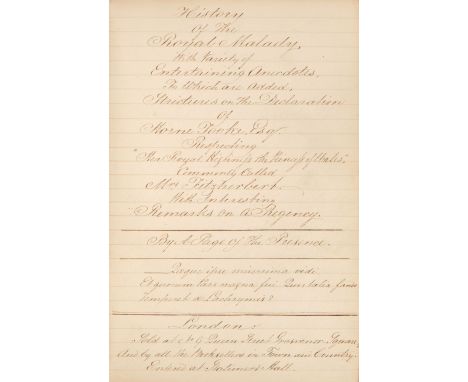 History
Of The
Royal Malady,
With Variety of
Entertaining Anecdotes,
To Which are Added,
Strictures on The Declaration
Of
Horne Tooke, Esq
Respecting
"Her Royal Highness the Princess of Wales",
Commonly Called
Mrs Fitzherbert.
With Interesting
Remarks on a Regency.
By A Page Of The Presence.
Quaque ipse miserrima vidi.
Et quorum Pars magna fui
Temperet a Lachrymis?
London:
Sold at No 6 Queen Street Grosvenor Square,
And by all the Booksellers in Town and Country.
Entered at Stationers Hall.